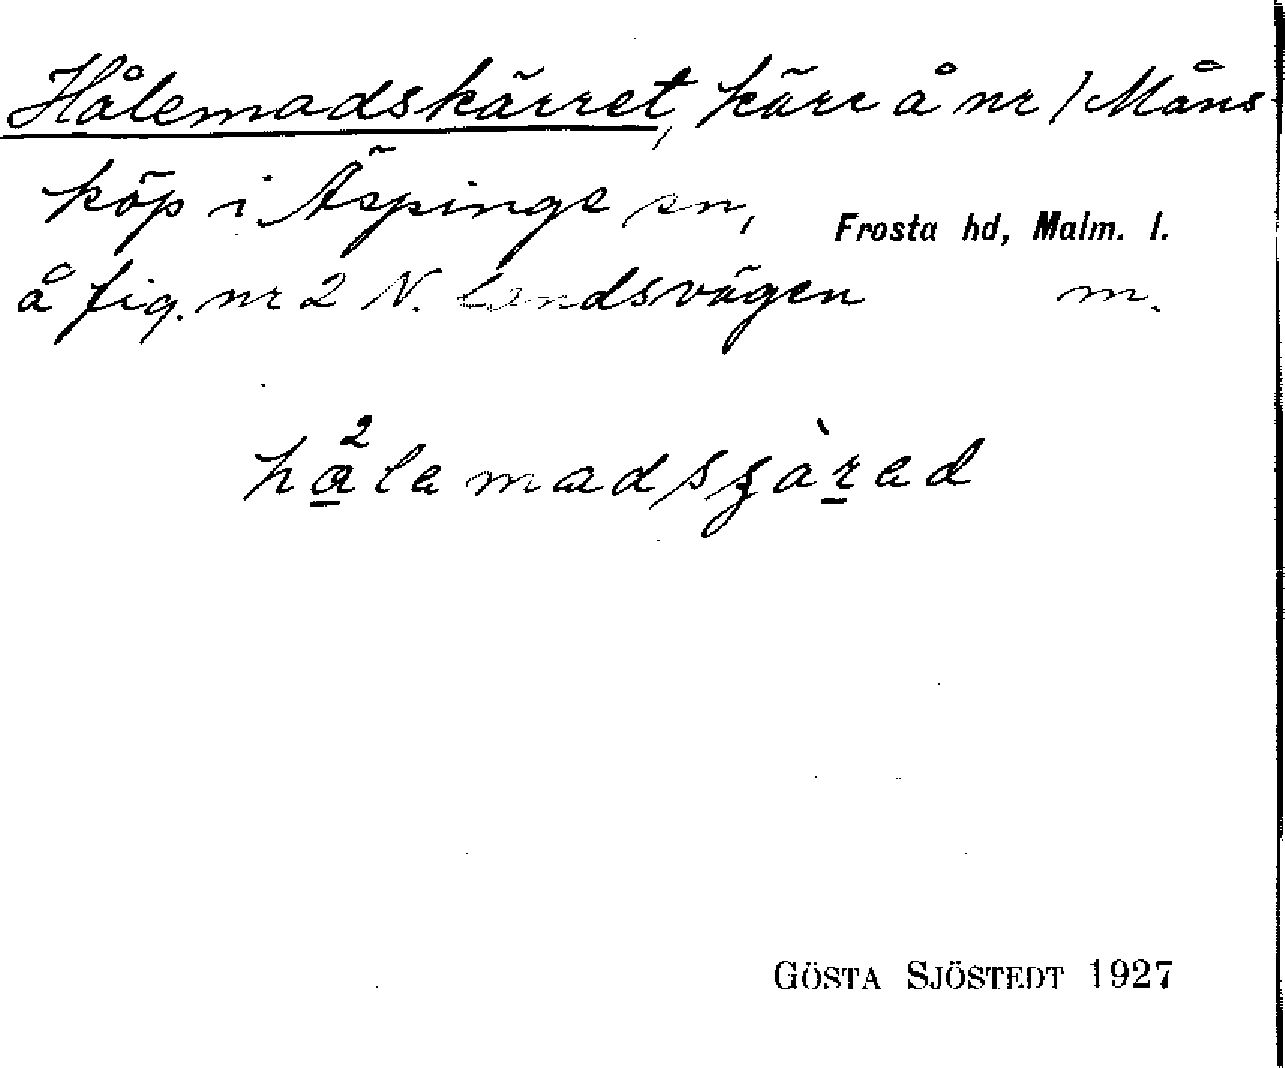 Hålemadskärret, kärr å nr 1 Måns-
köp i Äspinge sn, Frosta hd, Malm. l.
å fig. nr 2 N. Landsvägen m.
GÖSTA SJÖSTEDT 1927